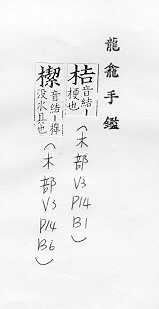 龍龕手鑑
桔 音結丨
梗也
(木部 V3 P14 B1)
音結丨槔
水具也
(木部 V3 P14 B6)